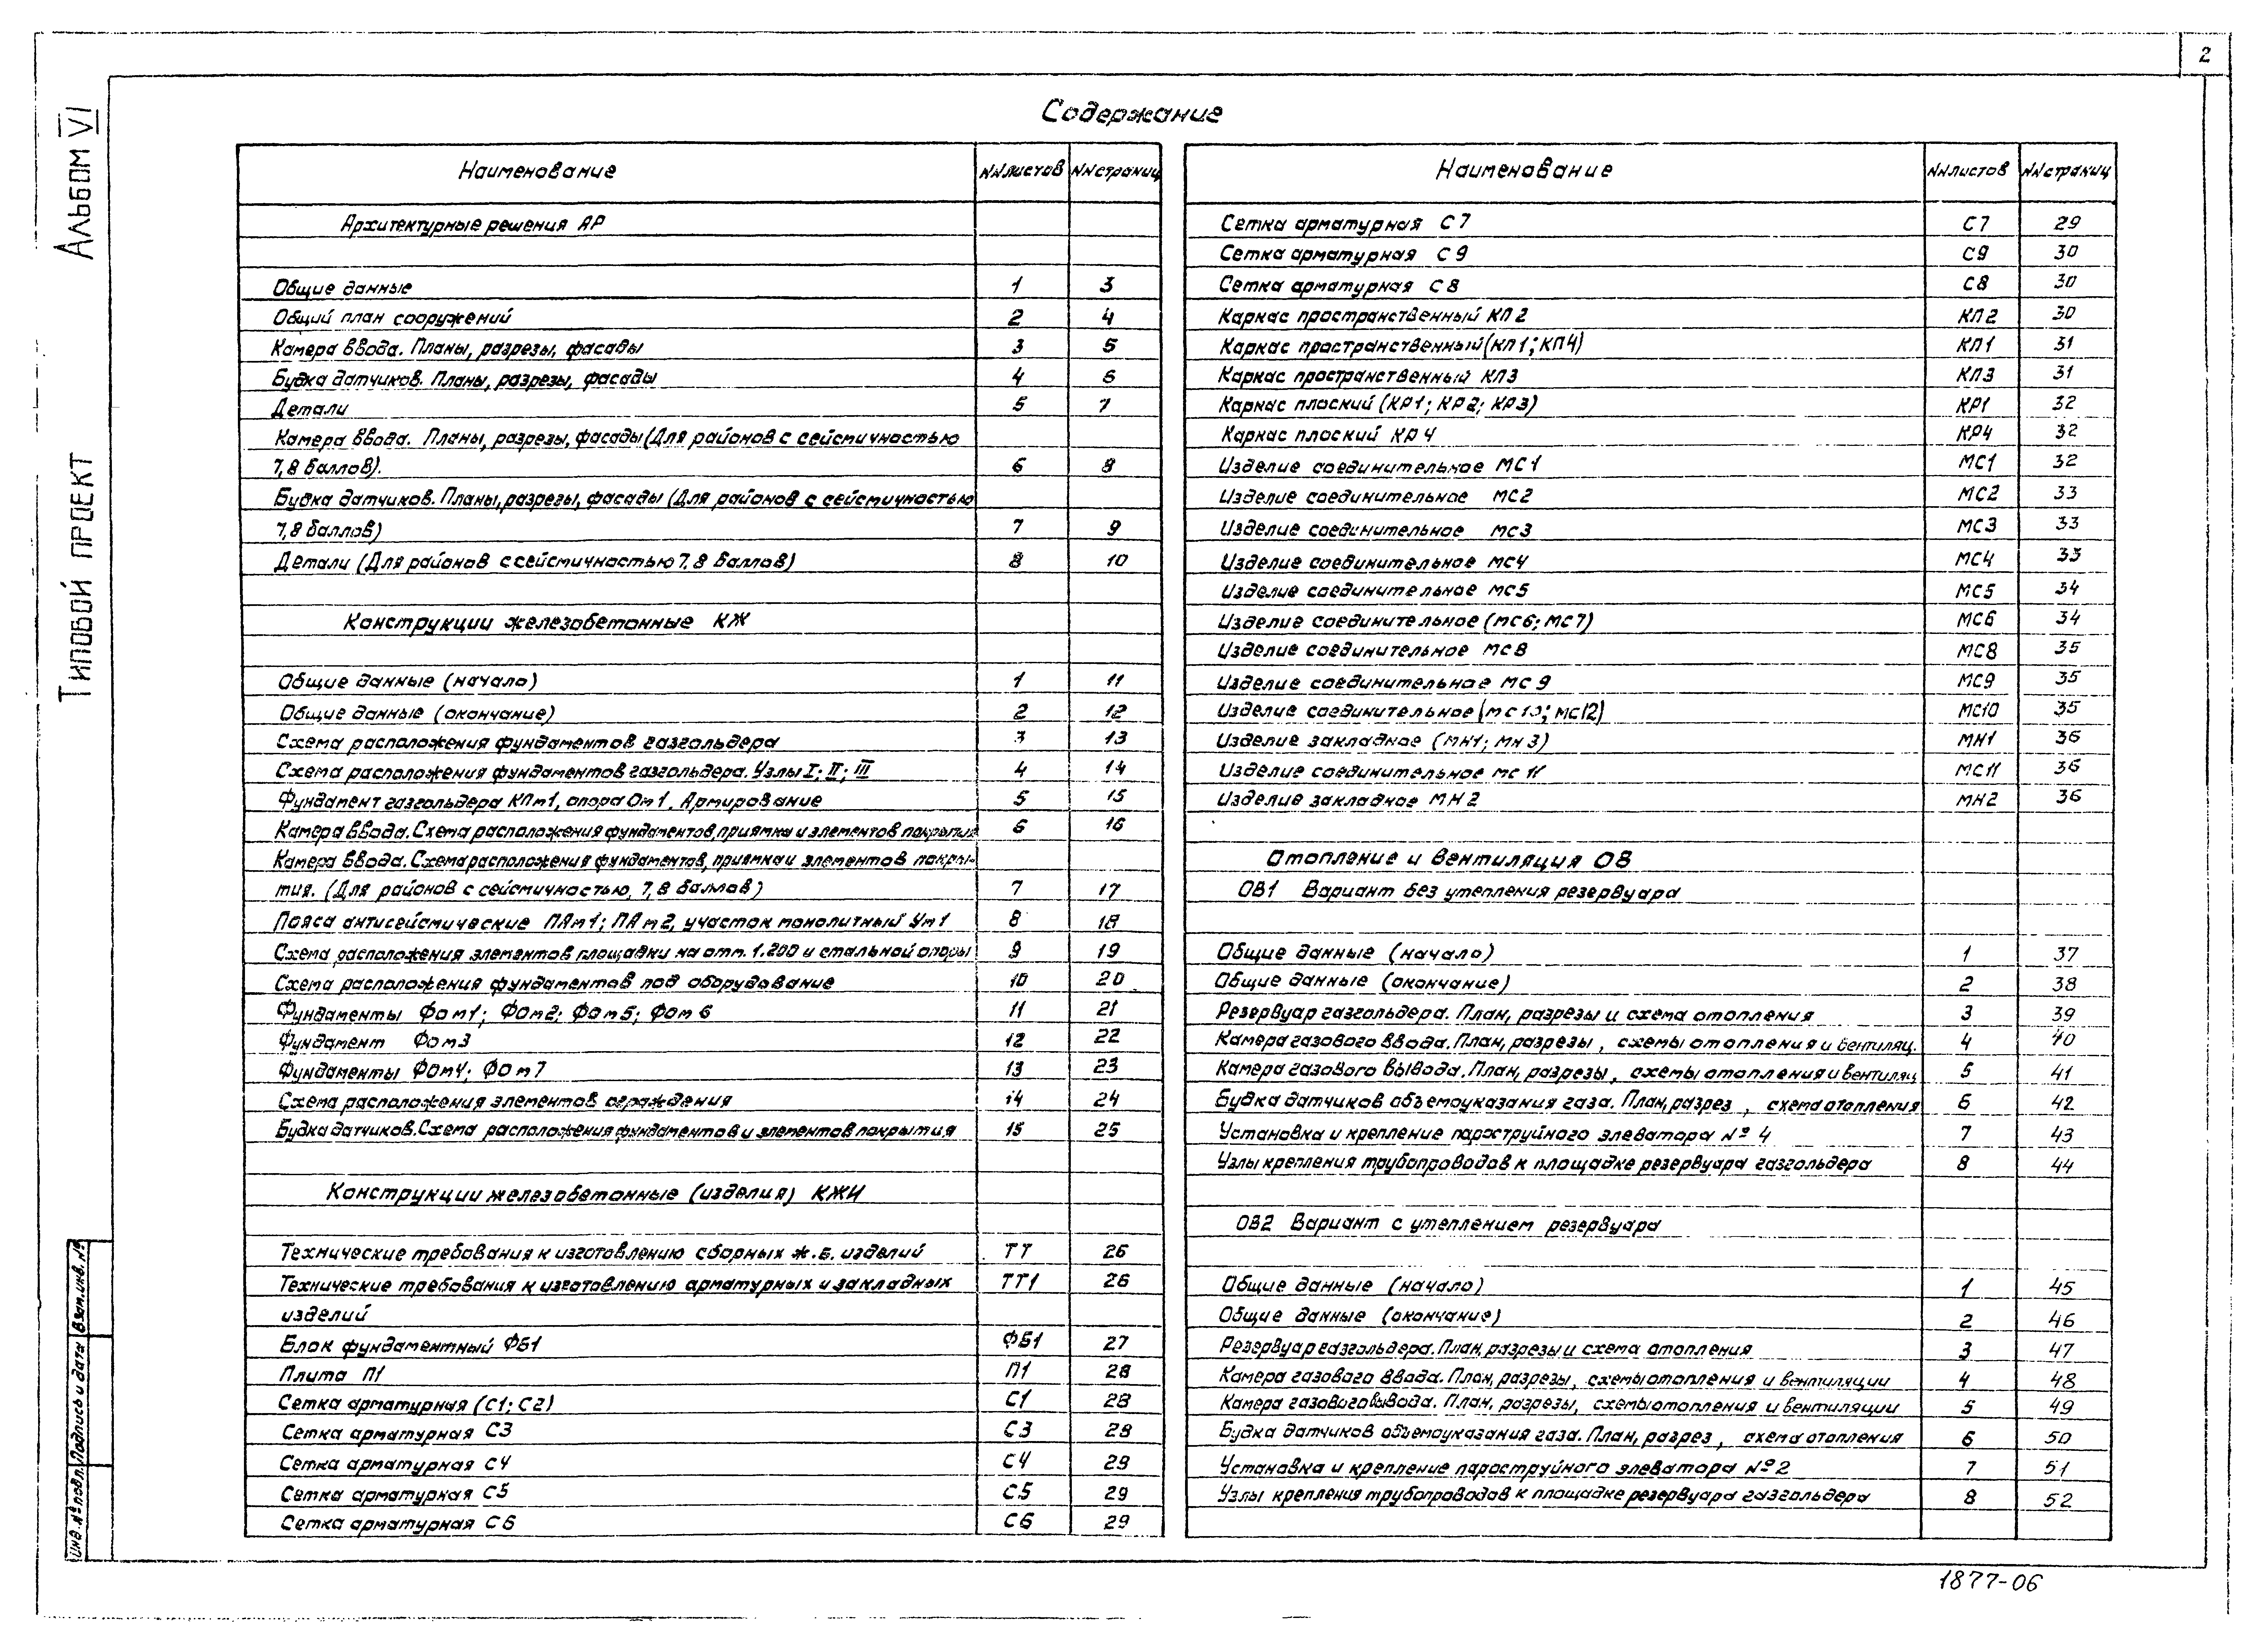 2
Альбом VI
Типовой проект
Содержание
Наименование NN листов NN страниц
Архитектурные решения АР
Общие данные 1 3
Общий план сооружений 2 4
Камера ввода. Планы, разрезы, фасады 3 5
Будка датчиков. Планы, разрезы, фасады 4 6
Детали 5 7
Камера ввода. Планы, разрезы, фасады (Для районов с сейсмичностью
7,8 баллов). 6 8
Будка датчиков. Планы, разрезы, фасады (Для районов с сейсмичностью
7,8 баллов) 7 9
Детали (Для районов с сейсмичностью 7,8 баллов) 8 10
Конструкции железобетонные КЖ
Общие данные (начало) 1 11
Общие данные (окончание) 2 12
Схема расположения фундаментов газгольдера 3 13
Схема расположения фундаментов газгольдера. Узлы I; II; III 4 14
Фундамент газгольдера КПм1, опора Ом1. Армирование 5 15
Камера ввода. Схема расположения фундаментов, приямка и элементов покрытия 6 16
Камера ввода. Схема расположения фундаментов, приямка и элементов покры-
тия. (Для районов с сейсмичностью, 7,8 баллов) 7 17
Пояса антисейсмические ПАм1; ПАм2, участок монолитный Ум1 8 18
Схема расположения элементов площадки на отм. 1.200 и стальной опоры 9 19
Схема расположения фундаментов под оборудование 10 20
Фундаменты Фом1; Фом2; Фом5; Фом6 11 21
Фундамент Фом3 12 22
Фундаменты Фом4; Фом7 13 23
Схема расположения элементов ограждения 14 24
Будка датчиков. Схема расположения фундаментов и элементов покрытия 15 25
Конструкции железобетонные (изделия) КЖИ
Технические требования к изготовлению сборных ж.б. изделий ТТ 26
Технические требования к изготовлению арматурных и закладных ТТ1 26
изделий
Блок фундаментный ФБ1 ФБ1 27
Плита П1 П1 28
Сетка арматурная (С1; С2) С1 28
Сетка арматурная С3 С3 28
Сетка арматурная С4 С4 29
Сетка арматурная С5 С5 29
Сетка арматурная С6 С6 29
Наименование NN листов NN страниц
Сетка арматурная С7 С7 29
Сетка арматурная С9 С9 30
Сетка арматурная С8 С8 30
Каркас пространственный КП2 КП2 30
Каркас пространственный (КП1; КП4) КП1 31
Каркас пространственный КП3 КП3 31
Каркас плоский (КР1; КР2; КР3) КР1 32
Каркас плоский КР4 КР4 32
Изделие соединительное МС1 МС1 32
Изделие соединительное МС2 МС2 33
Изделие соединительное МС3 МС3 33
Изделие соединительное МС4 МС4 33
Изделие соединительное МС5 МС5 34
Изделие соединительное (МС6; МС7) МС6 34
Изделие соединительное МС8 МС8 35
Изделие соединительное МС9 МС9 35
Изделие соединительное (МС10; МС12) МС10 35
Изделие закладное (МН1; МН3) МН1 36
Изделие соединительное МС11 МС11 36
Изделие закладное МН2 МН2 36
Отопление и вентиляция ОВ
ОВ1 Вариант без утепления резервуара
Общие данные (начало) 1 37
Общие данные (окончание) 2 38
Резервуар газгольдера. План, разрезы и схема отопления 3 39
Камера газового ввода. План, разрезы, схемы отопления и вентиляц. 4 40
Камера газового вывода. План, разрезы, схемы отопления и вентиляц 5 41
Будка датчиков объемоуказания газа. План, разрез, схема отопления 6 42
Установка и крепление пароструйного элеватора №4 7 43
Узлы крепления трубопроводов к площадке резервуара газгольдера 8 44
ОВ2 Вариант с утеплением резервуара
Общие данные (начало) 1 45
Общие данные (окончание) 2 46
Резервуар газгольдера. План, разрезы и схема отопления 3 47
Камера газового ввода. План, разрезы, схемы отопления и вентиляции 4 48
Камера газового вывода. План, разрезы, схемы отопления и вентиляции 5 49
Будка датчиков объемоуказания газа. План, разрез, схема отопления 6 50
Установка и крепление пароструйного элеватора №2 7 51
Узлы крепления трубопроводов к площадке резервуара газгольдера 8 52
Инв. № подл. Подпись и дата Взам. инв. №
1877-06